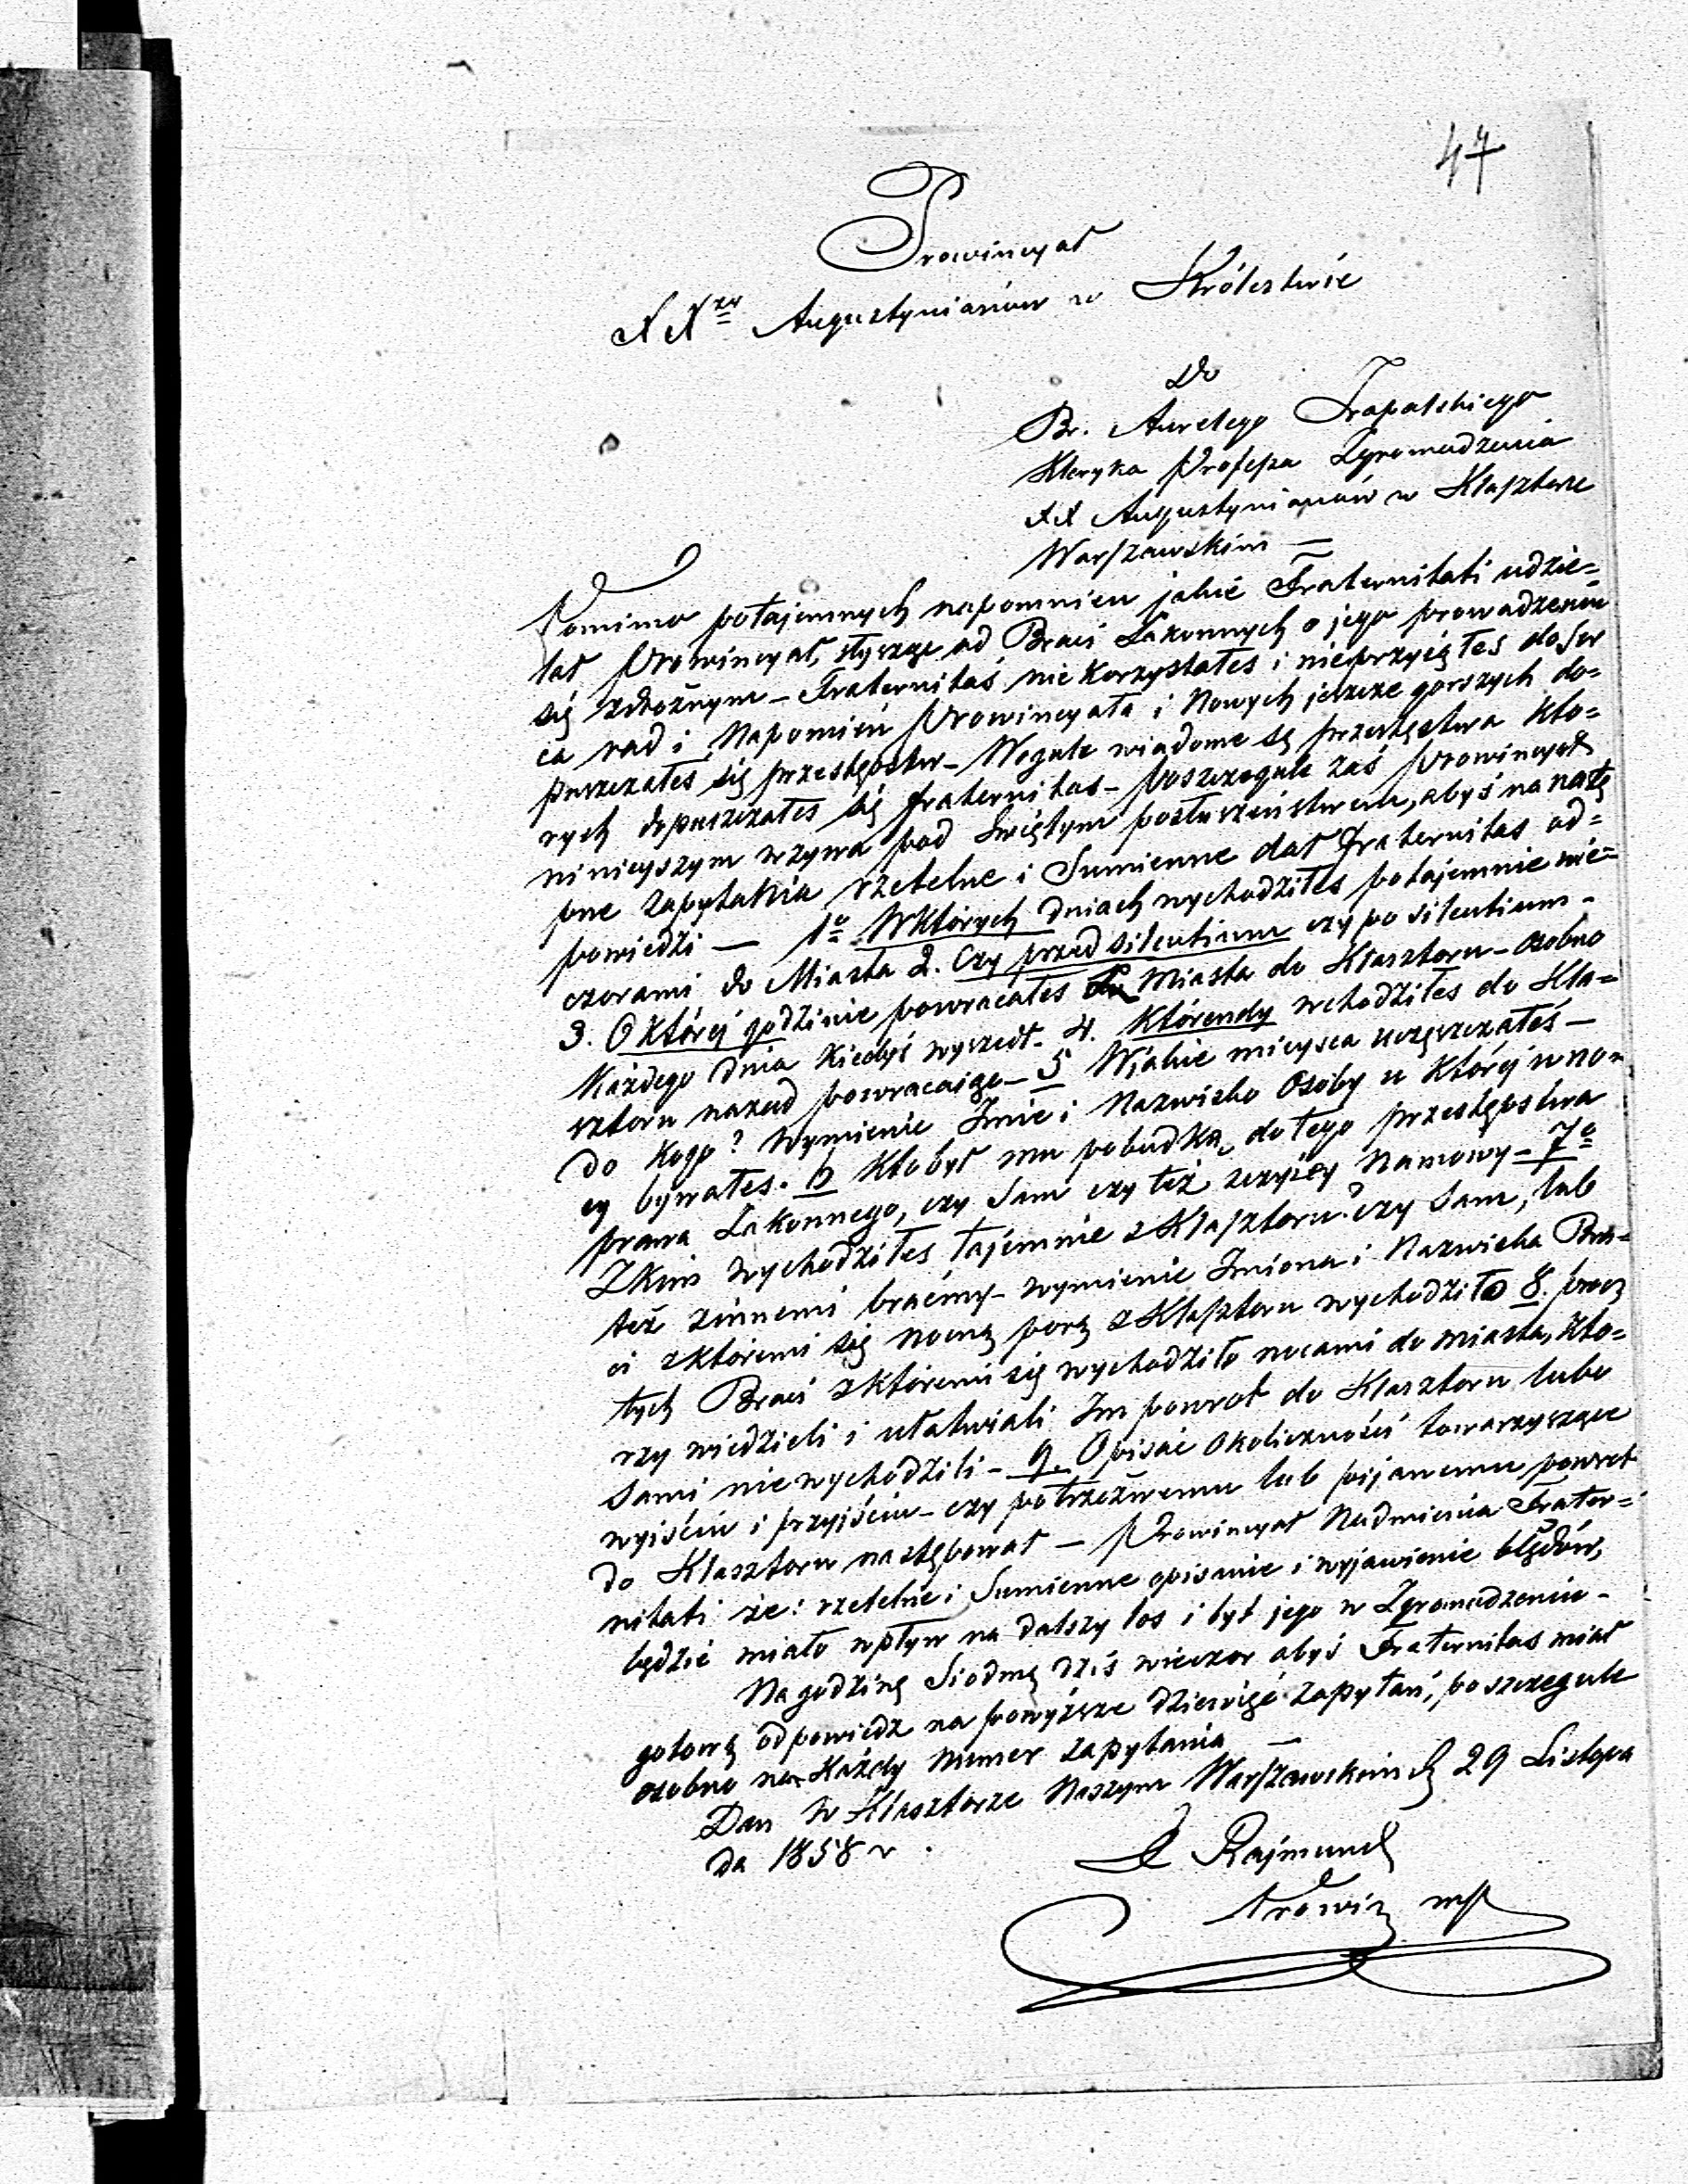 47
Prowincyał
XXży Augustynianów w Królestwie
Do
Br. Aurelego Trapalskiego
Kleryka Professa Zgromadzenia
XX Augustynianów w Klasztorze
Warszawskim —
Pomimo potajemnych napomnień jakie Fraternitati udzie=
lał Prowincyał, słysząc od Braci Zakonnych o jego prowadzeniu
się zdrożnym – Fraternitaś nie korzystałeś i nieprzyiąłes do Ser
ca rad i Napomień Prowincyała i Nowych jeszcze gorszych do=
puszczałes się przestępstw – Wogule wiadome są przestęstwa któ=
rych dopuszczałes się fraternitas – poszczegule zaś Prowincyał
niniejszym wzywa pod Świętym posłuszeństwem, abyś na nastę
pne Zapytania rzetelne i Sumienne dał Fraternitas od=
powiedzi — 1o W których dniach wychodziłeś potajemnie wie=
czorami do Miasta 2. Czy przed silentium czy po silentium –
3. O któréj godzinie powracałes z Miasta do Klasztoru – osobno
Każdego dnia kiedyś wyszedł – 4. Którendy wchodziłes do Kla=
sztoru nazad powracaiąc – 5 W jakie mieysca uczęszczałeś —
do kogo? wymienić Imie i Nazwisko Osoby u któréj w no=
cy bywałes. 6 Kto był mu pobudką do tego przestępstwa
prawa Zakonnego, czy Sam czy też z czyiéy Namowy – 7o
Z kim wychodziłes tajemnie z Klasztoru czy Sam, lub
też zinnemi braćmy – wymienić Imiona i Nazwiska Bra=
ci z któremi się nocną porą z Klasztoru wychodziło 8. procz
tych Braci z któremi się wychodziło nocami do miasta, któ=
rzy wiedzieli i ułatwiali Im powrot do Klasztoru lubo
Sami nie wychodzili – 9. Opisać okoliczności towarzyszące
wyiściu i przyjściu – czy po trzeźwemu lub pijanemu powrot
do Klasztoru następował — Prowincyał Nadmienia Frater=
nitati że: rzetelne i Sumienne opisanie i wyjawienie błędów,
będzie miało wpływ na dalszy los i byt jego w Zgromadzeniu –
Na godzinę Siodmą dziś wieczor abyś Fraternitas miał
gotową odpowiedz na powyższe dziewięć Zapytań, poszczegule
osobno na Każdy numer zapytania —
Dan w Klasztorze Naszym Warszawskim d 29 Listopa
da 1858 r.
X Rajmund
Prowin mp